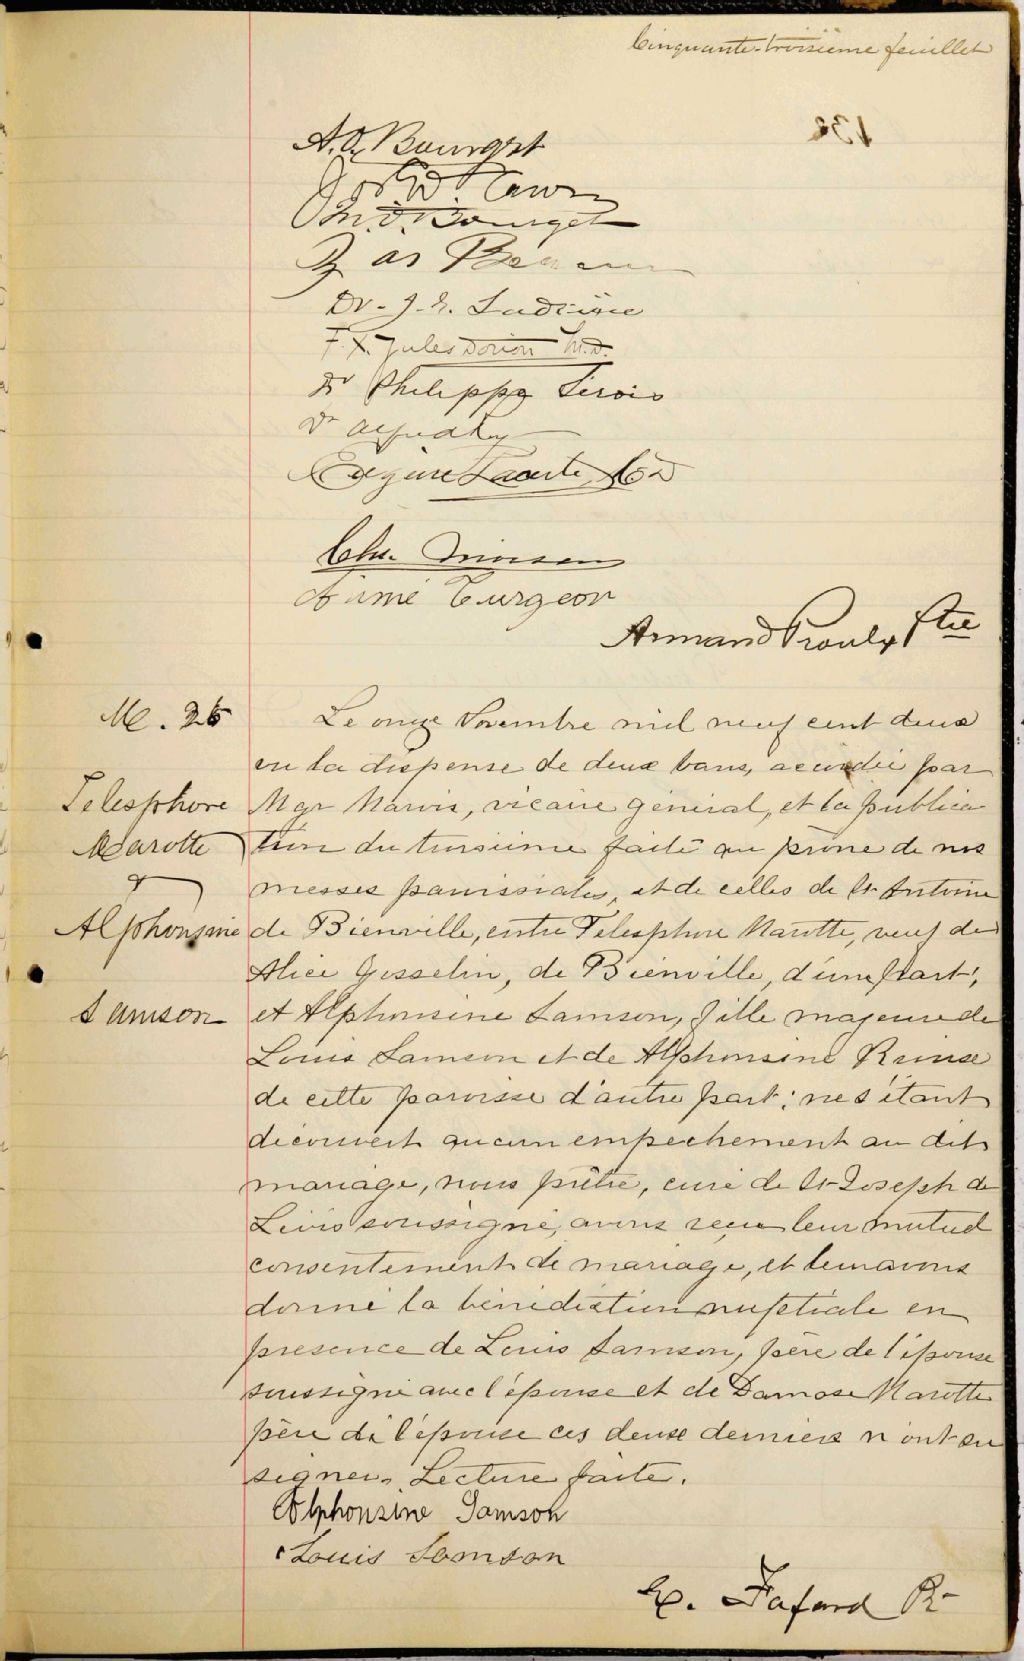 Cinquante-troisième feuillet
A. O. Bourget
M. D. Bourget
Dr. J. E. Ladrière
F. X. Jules Dorion M.D.
Dr Philippe Sirois
Dr
Eugène
Chs.
Aimé Turgeon
Armand Proulx Ptre
M. 25
Telesphore
Marotte
&
Alphonsine
Samson
Le onze Novembre mil neuf cent deux
vu la dispense de deux bans, accordée par
Mgr Marois, vicaire général, et la publica
tion du troisième faite au prône de nos
messes paroissiales, et de celles de St Antoine
de Bienville, entre Telesphore Marotte, veuf de
Alice Gosselin, de Bienville, d'une part,
et Alphonsine Samson, fille majeure de
Louis Samson et de Alphonsine
de cette paroisse d'autre part; ne s'étant
découvert aucun empechement au dit
mariage, nous prêtre, curé de St Joseph de
Lévis soussigné, avons reçu leur mutuel
consentement de mariage, et leur avons
donné la bénédiction nuptiale en
presence de Louis Samson, père de l'épouse
soussigné avec l'épouse et de Damase Marotte
père de l'épouse ces deux derniers n'ont su
signer. Lecture faite.
Alphonsine Samson
Louis Samson
E. Fafard Ptr